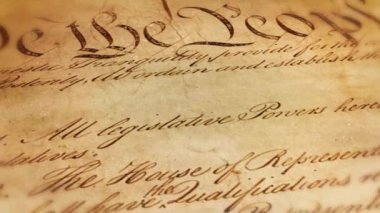 We The People
Tranquility, provide for
Posterity, do ordain and establish this
1. All legislative Powers herein
tatives.
1. The House of Represent
the
ll have Qualifications